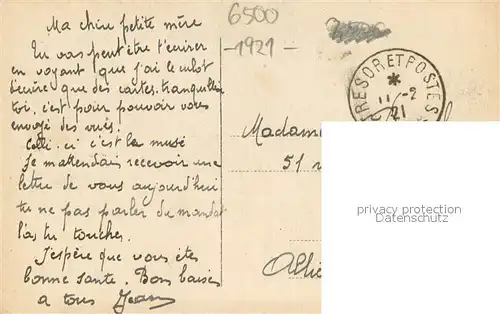 Ma chère petite mère
Tu vas peut être t'écrier
en voyant que j'ai le culot
d'écrire que des cartes. tranquillise
toi, c'est pour pouvoir vous
envoyer des vues.
Celle-ci c'est la
Je m'attendais recevoir une
lettre de vous aujourd'hui
tu ne pas parler du mandat
l'as tu toucher.
J'espère que vous êtes
bonne santé. Bons baisers
a tous Jean
6500
-1921-
TRESOR ET POSTES
*
11-2
21
Madame
51
privacy protection
Datenschutz